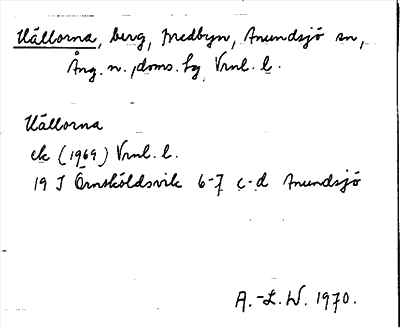 Hällorna, berg, Bredbyn, Anundsjö sn,
Ång. n., doms. fg, Vrnl. l.
Hällorna
ek (1969) Vrnl. l.
19 J Örnsköldsvik 6-7 c-d Anundsjö
A.-L. W. 1970.